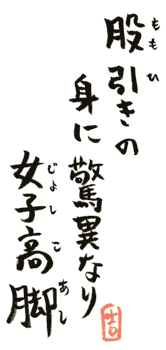 股引きの
身に驚異なり
女子高脚
ももひ
じょしこあし